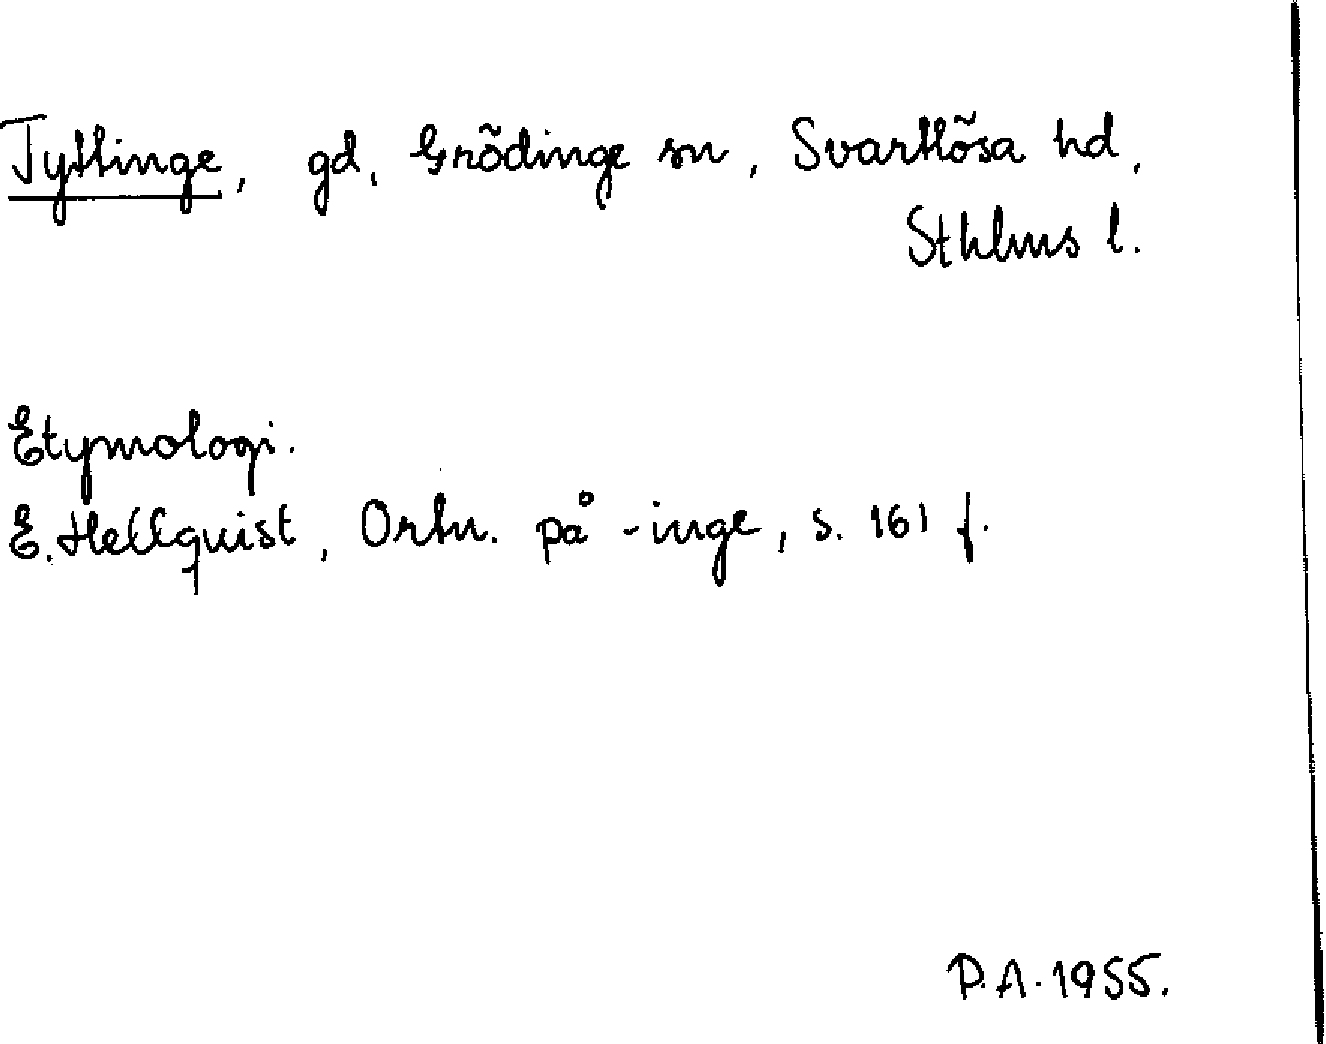 Tyttinge, gd, Grödinge sn, Svartlösa hd,
Sthlms l.
Etymologi.
E. Hellquist, Ortn. på -inge, s. 161 f.
P.A. 1955.